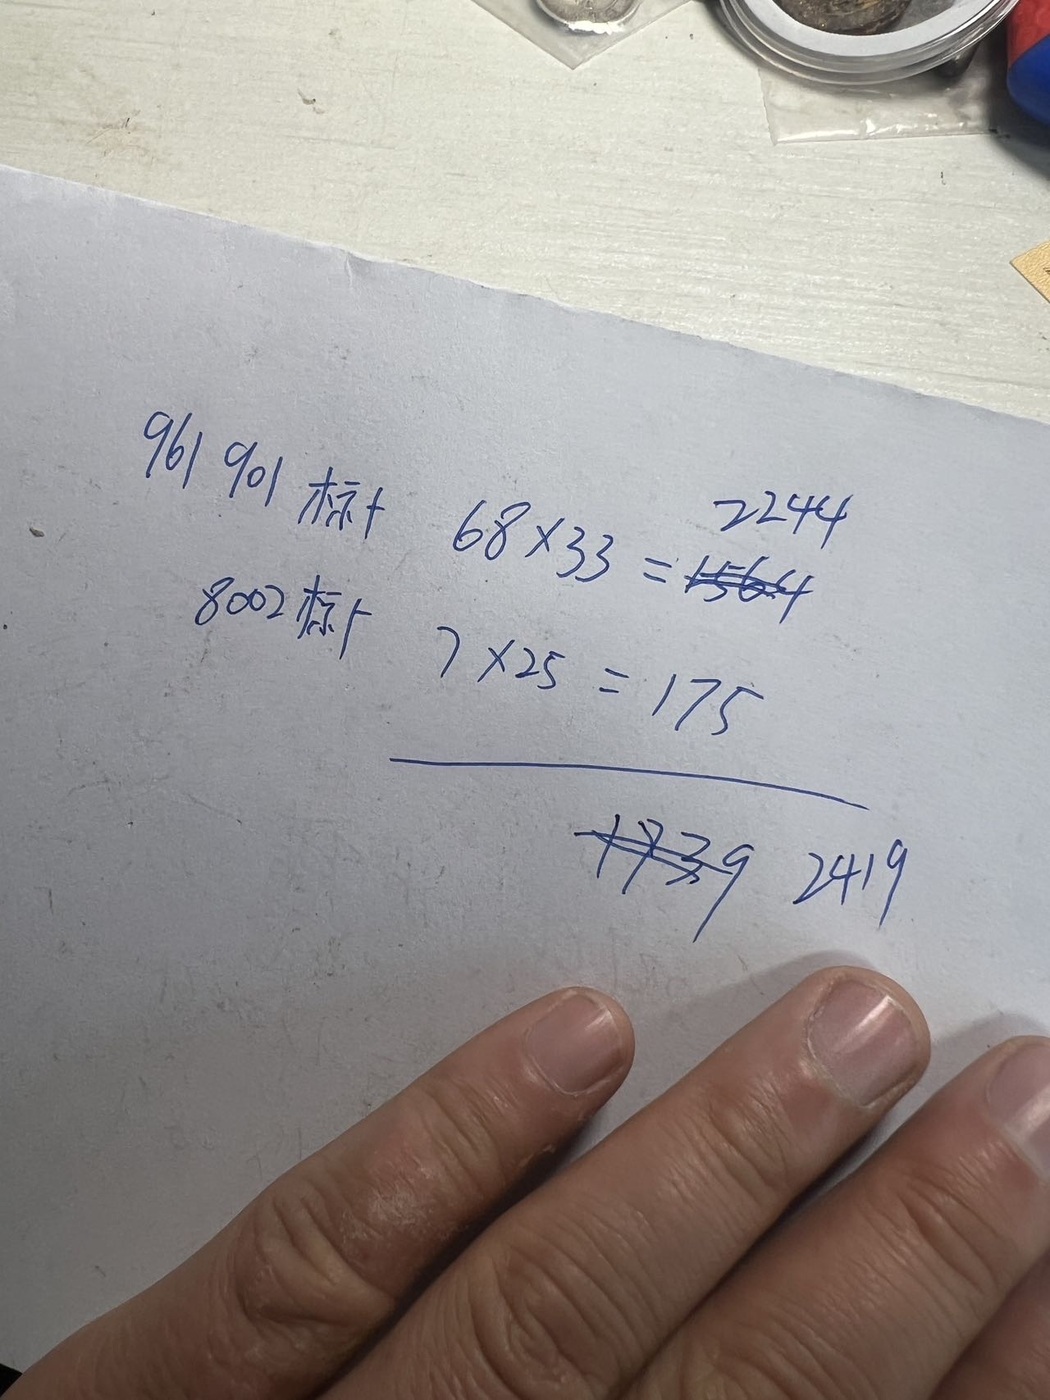 961 901 标十 68×33 = 1564 2244
8002标十 7×25 = 175
1739 2419